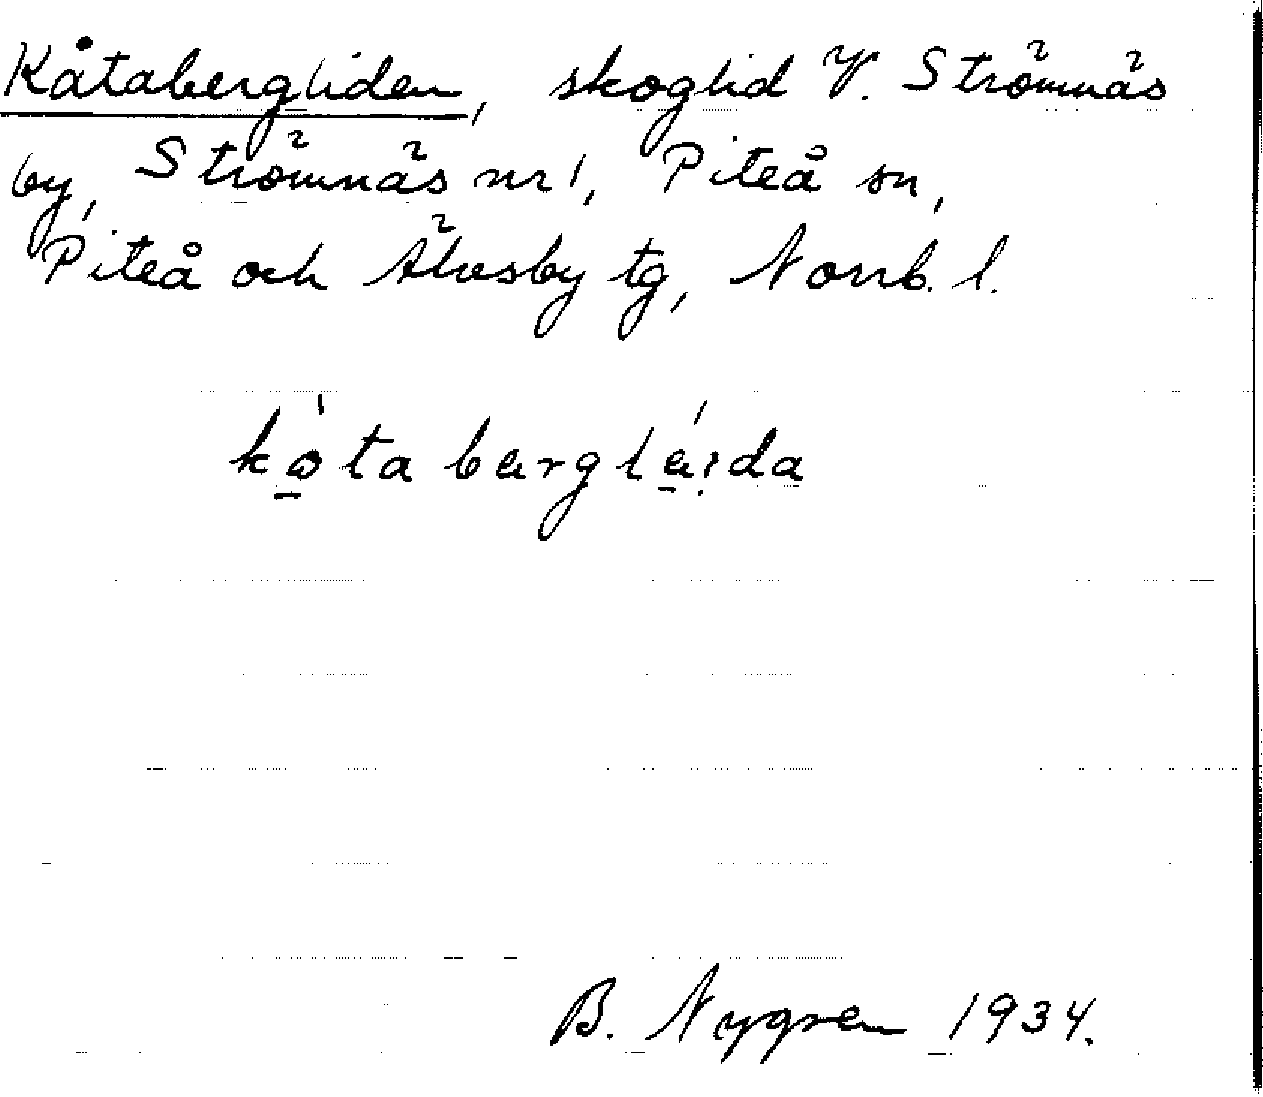 Kåtabergliden, skoglid V. Strömnäs
by, Strömnäs nr 1, Piteå sn,
Piteå och Älvsby tg, Norrb. l.
kǿta bærglæ̀ıda
B. Nygren 1934.